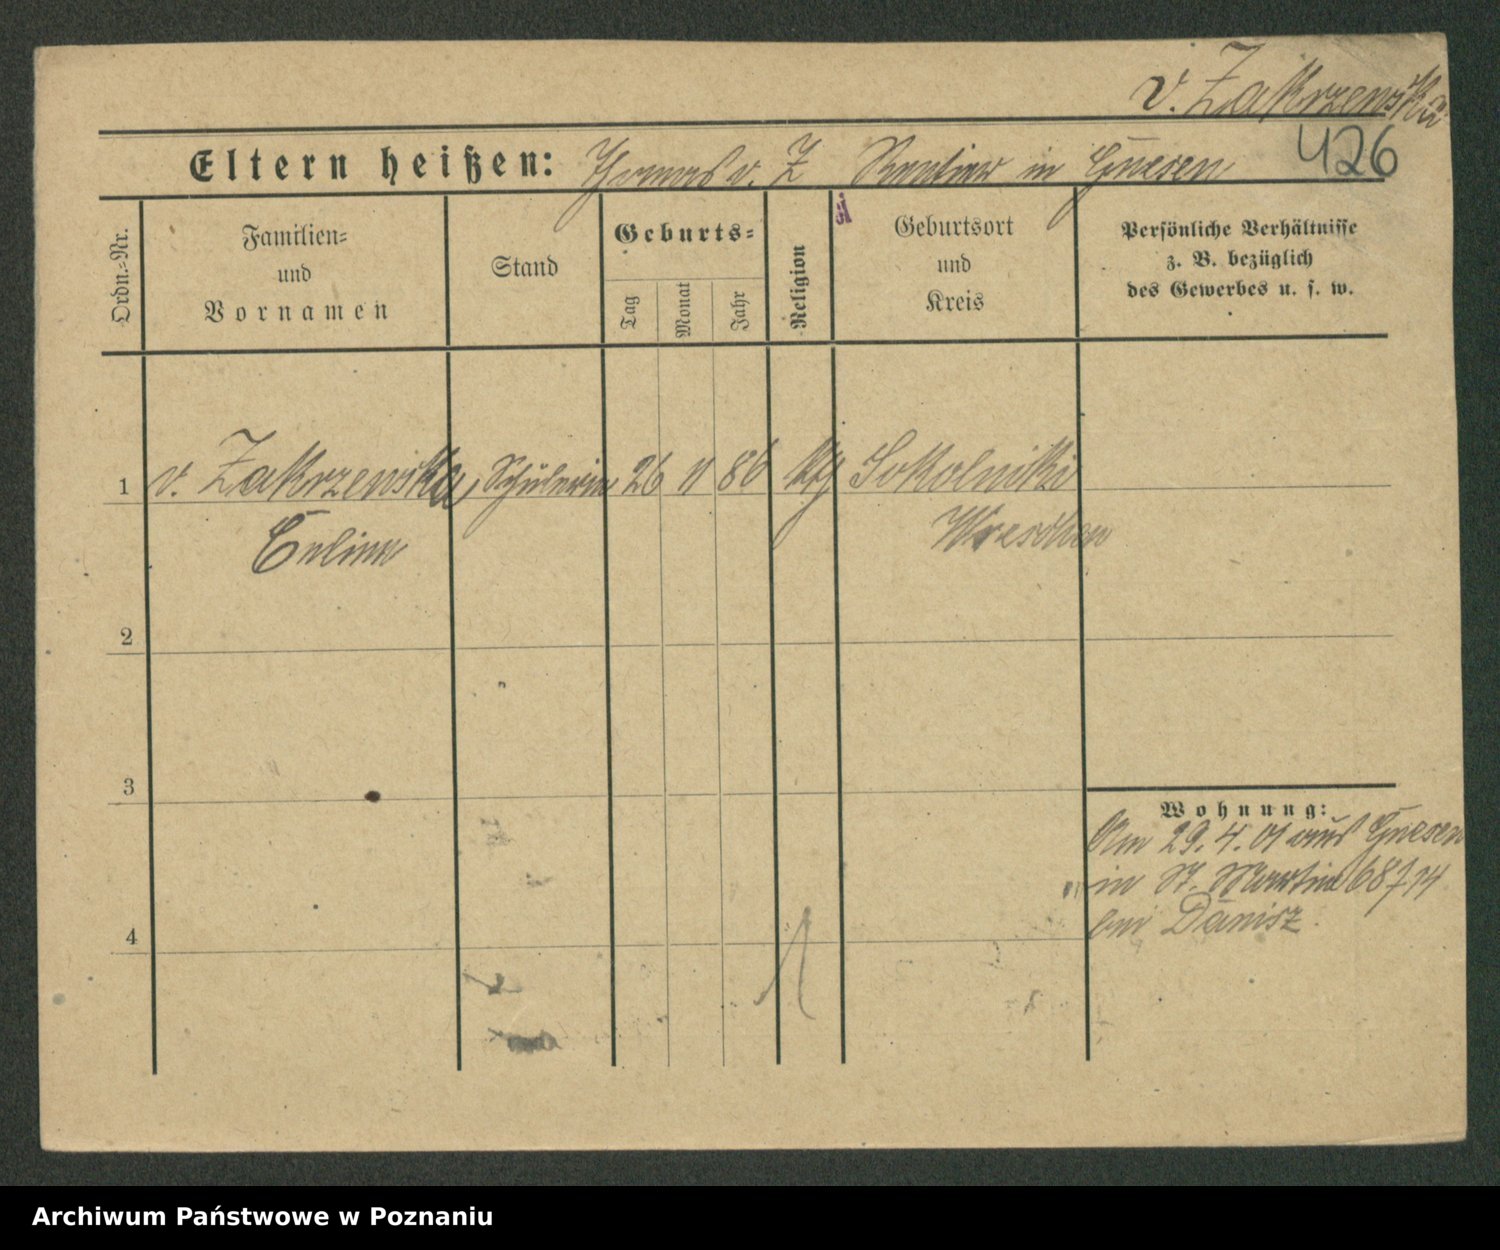 v. Zakrzewska
426
Eltern heißen: Thomas v. Z Rentier in Gnesen
Ordn.-Nr.
Familien-
und
Vornamen
Stand
Geburts-
Tag
Monat
Jahr
Religion
Geburtsort
und
Kreis
Persönliche Verhältnisse
z. B. bezüglich
des Gewerbes u. s. w.
1 v. Zakrzewska, Schülerin 26 11 86 kth Sokolniki
Wreschen
2
3
Wohnung:
Am 29.4.01 aus Gnesen
in St. Martin 68
bei Danisz.
4
Archiwum Państwowe w Poznaniu